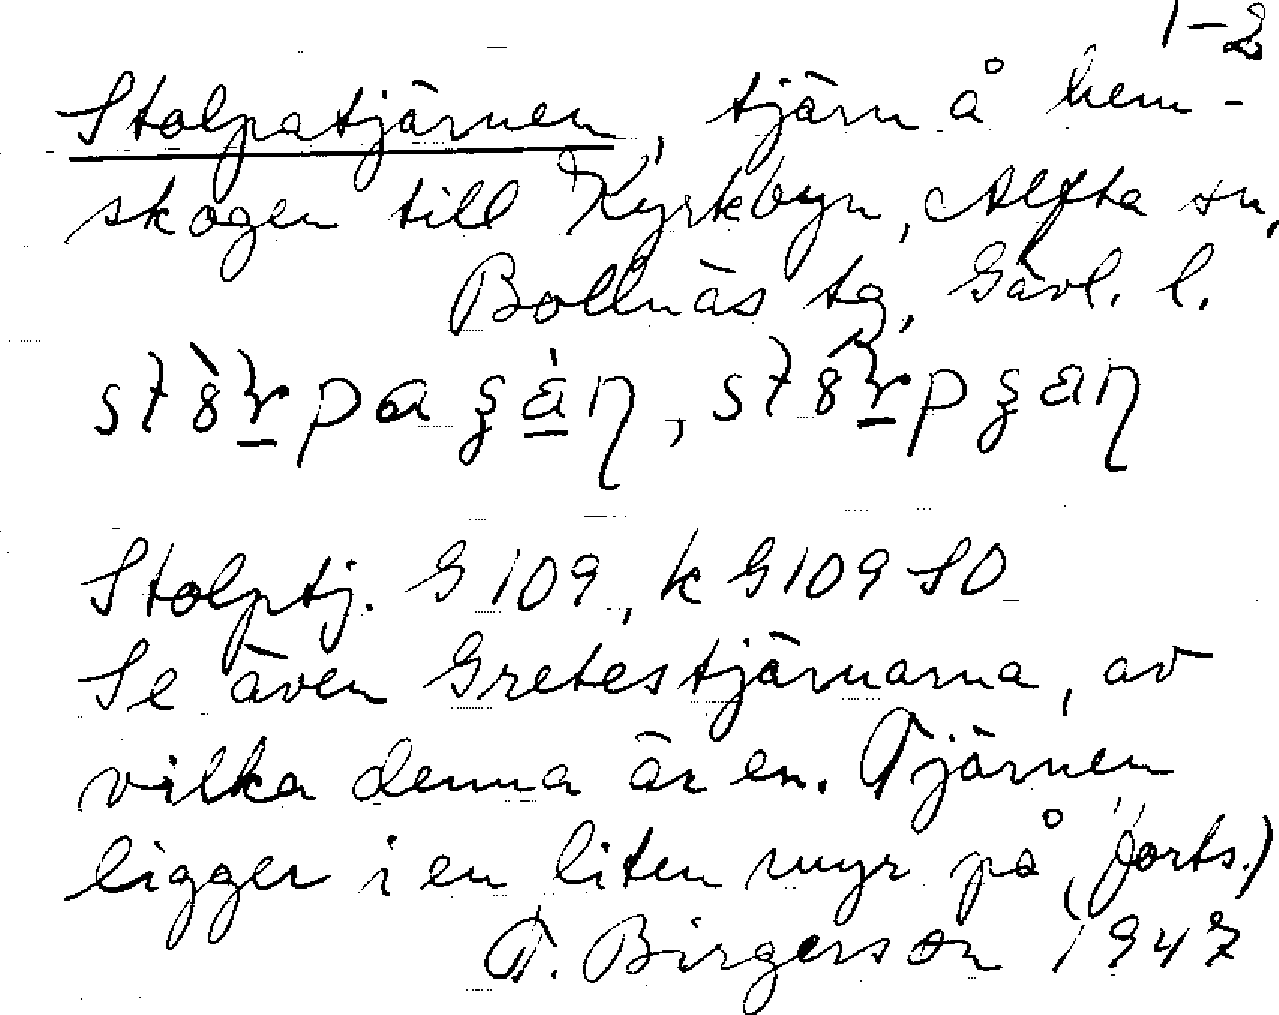 1-2
Stolpatjärnen, tjärn å hem-
skogen till Kyrkbyn, Alfta sn,
Bollnäs tg, Gävl. l.
Stolptj. G 109, k G109 SO
Se även Gretestjärnarna, av
vilka denna är en. Tjärnen
ligger i en liten myr på (forts.)
T. Birgerson 1947